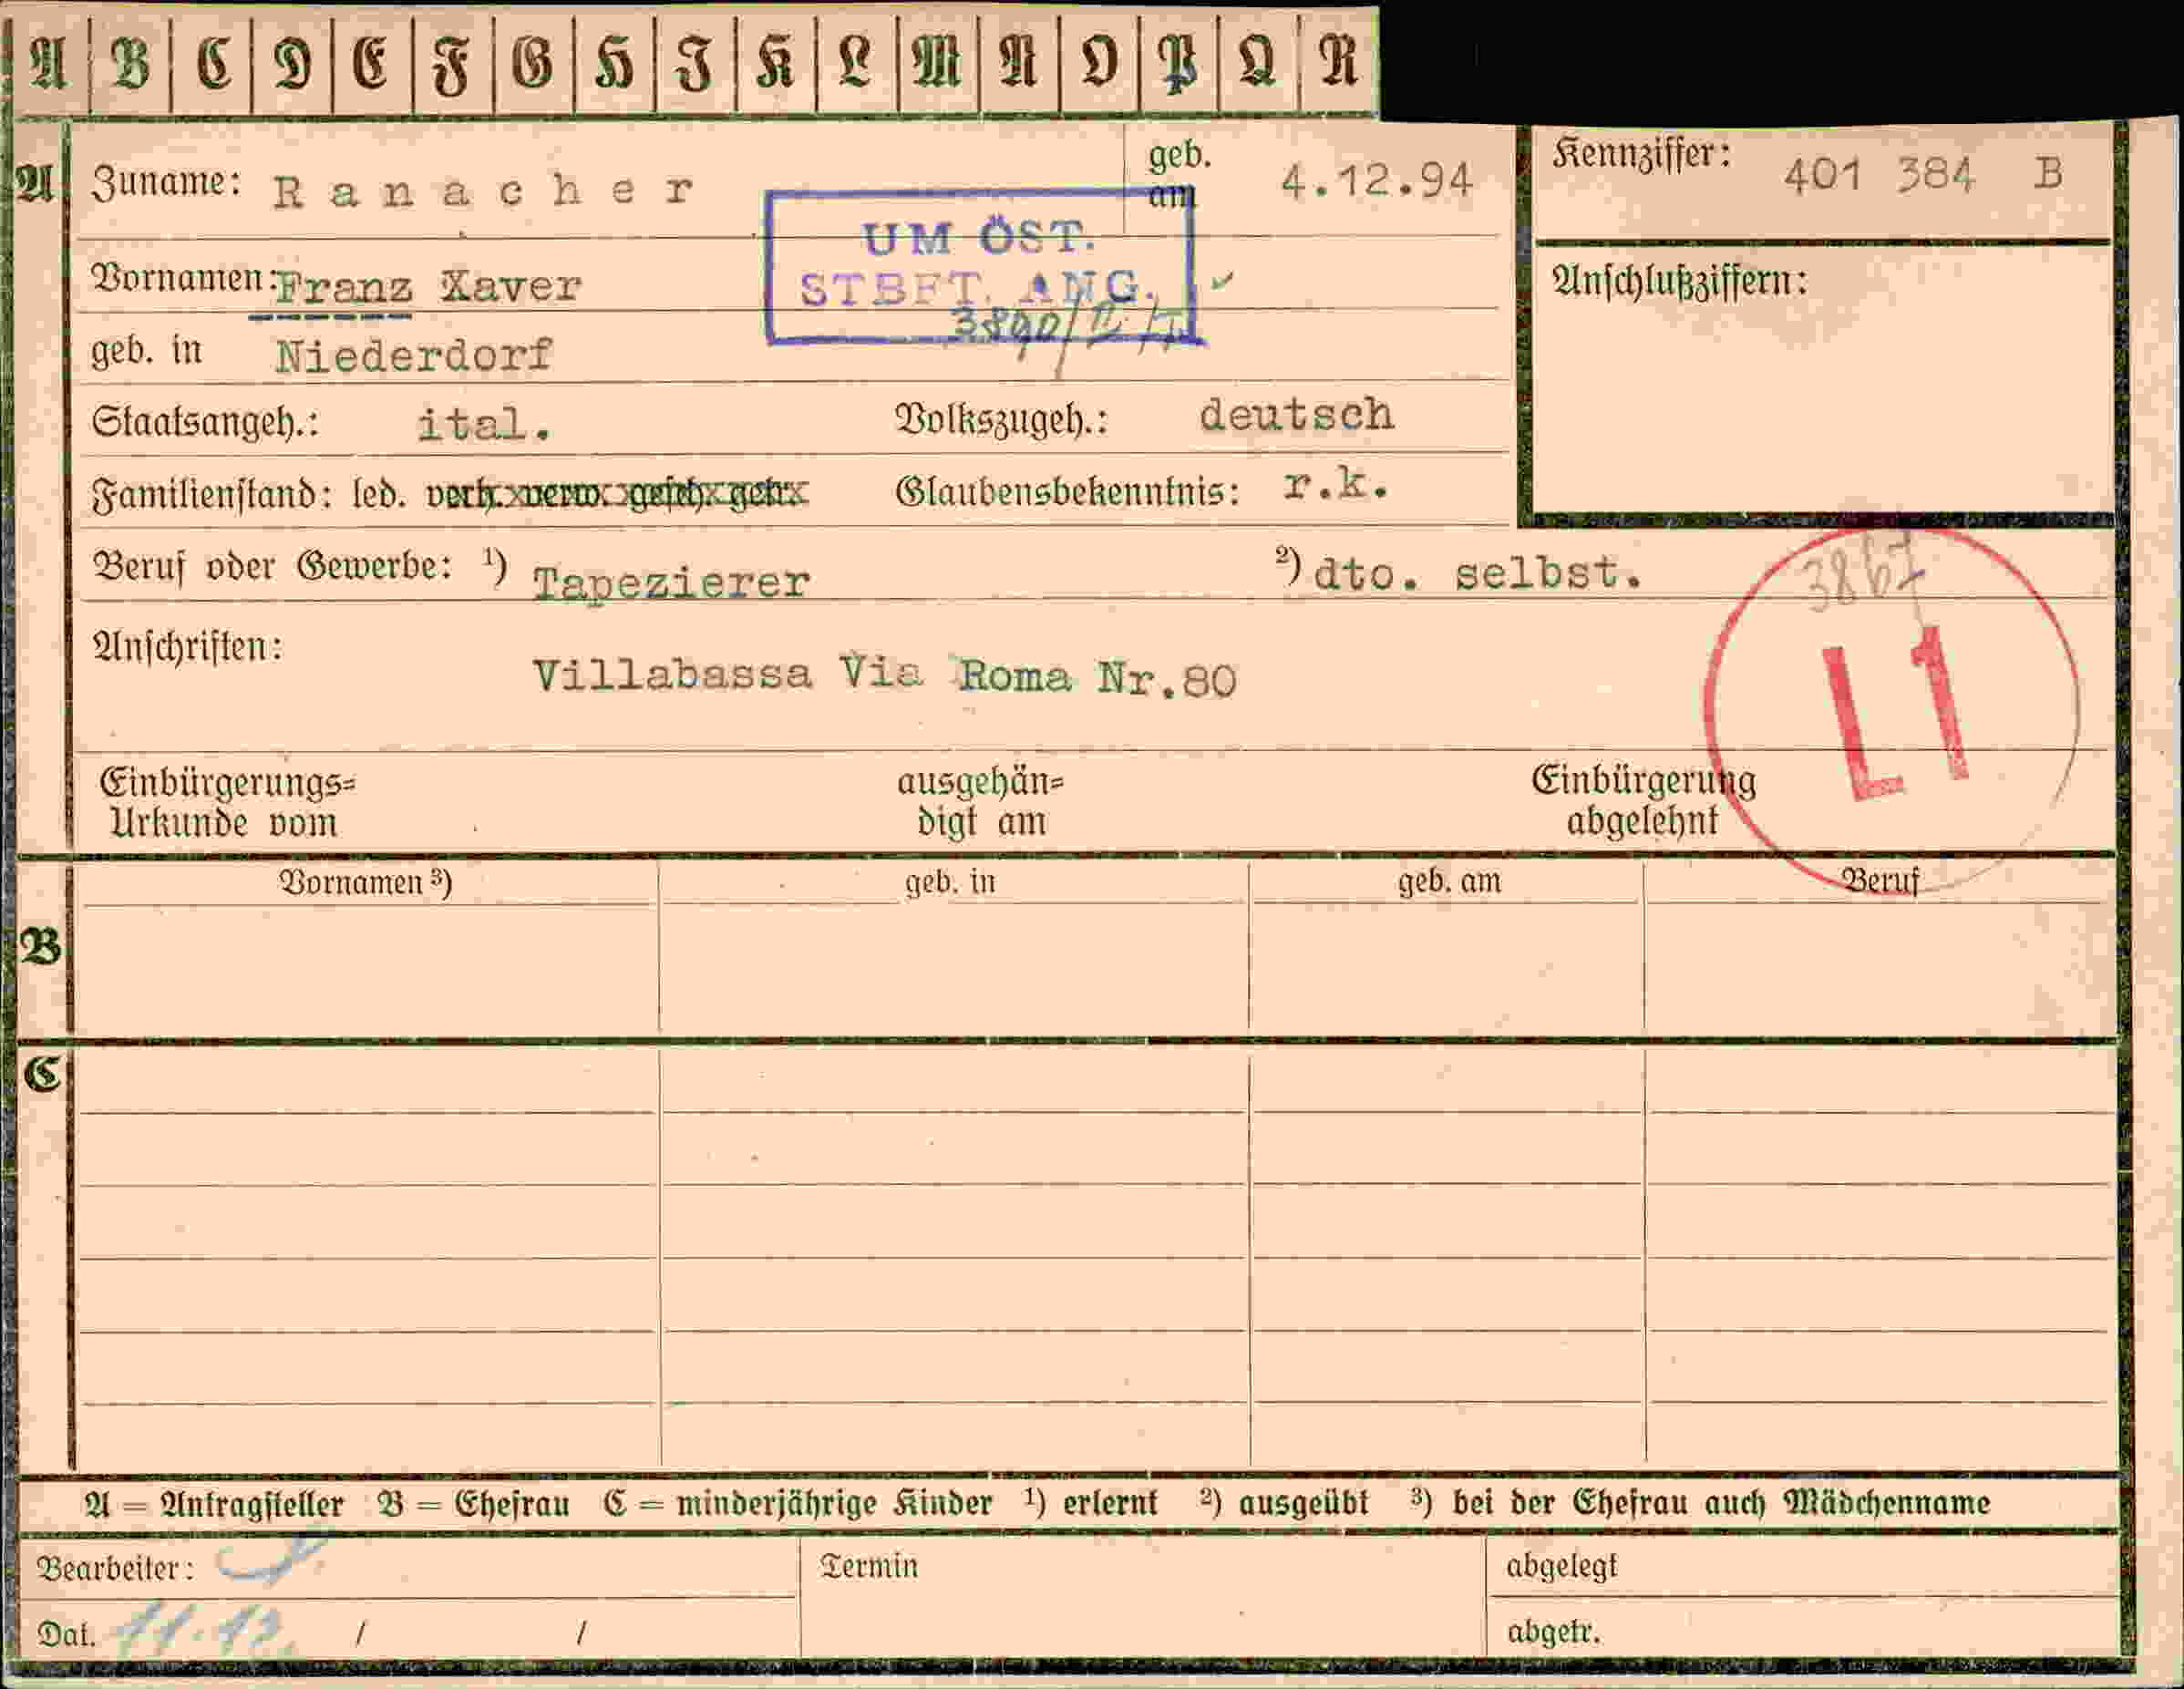 A B C D E F G H I K L M N O P Q R
A Zuname: Ranacher geb. am 4.12.94 Kennziffer: 401 384 B
UM ÖST.
STBFT. ANG.
Vornamen: Franz Xaver Anschlußziffern:
geb. in Niederdorf
Staatsangeh.: ital. Volkszugeh.: deutsch
Familienstand: led. verh. verw. gesch. getr. Glaubensbekenntnis: r.k.
Beruf oder Gewerbe: ¹) Tapezierer ²) dto. selbst. 3867
Anschriften: Villabassa Via Roma Nr.80
L1
Einbürgerungs= ausgehän= Einbürgerung
Urkunde vom digt am abgelehnt
Vornamen ³) geb. in geb. am Beruf
B
C
A = Antragsteller B = Ehefrau C = minderjährige Kinder ¹) erlernt ²) ausgeübt ³) bei der Ehefrau auch Mädchenname
Bearbeiter: Termin abgelegt
Dat. 11.12. / / abgetr.